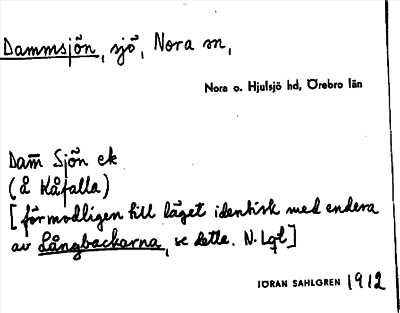 Dammsjön, sjö, Nora sn,
Nora o. Hjulsjö hd, Örebro län
Dam̄ Sjön ek
(å Kåfalla)
[förmodligen till läget identisk med endera
av Långbackarna, se detta. N. Lqt]
JÖRAN SAHLGREN 1912